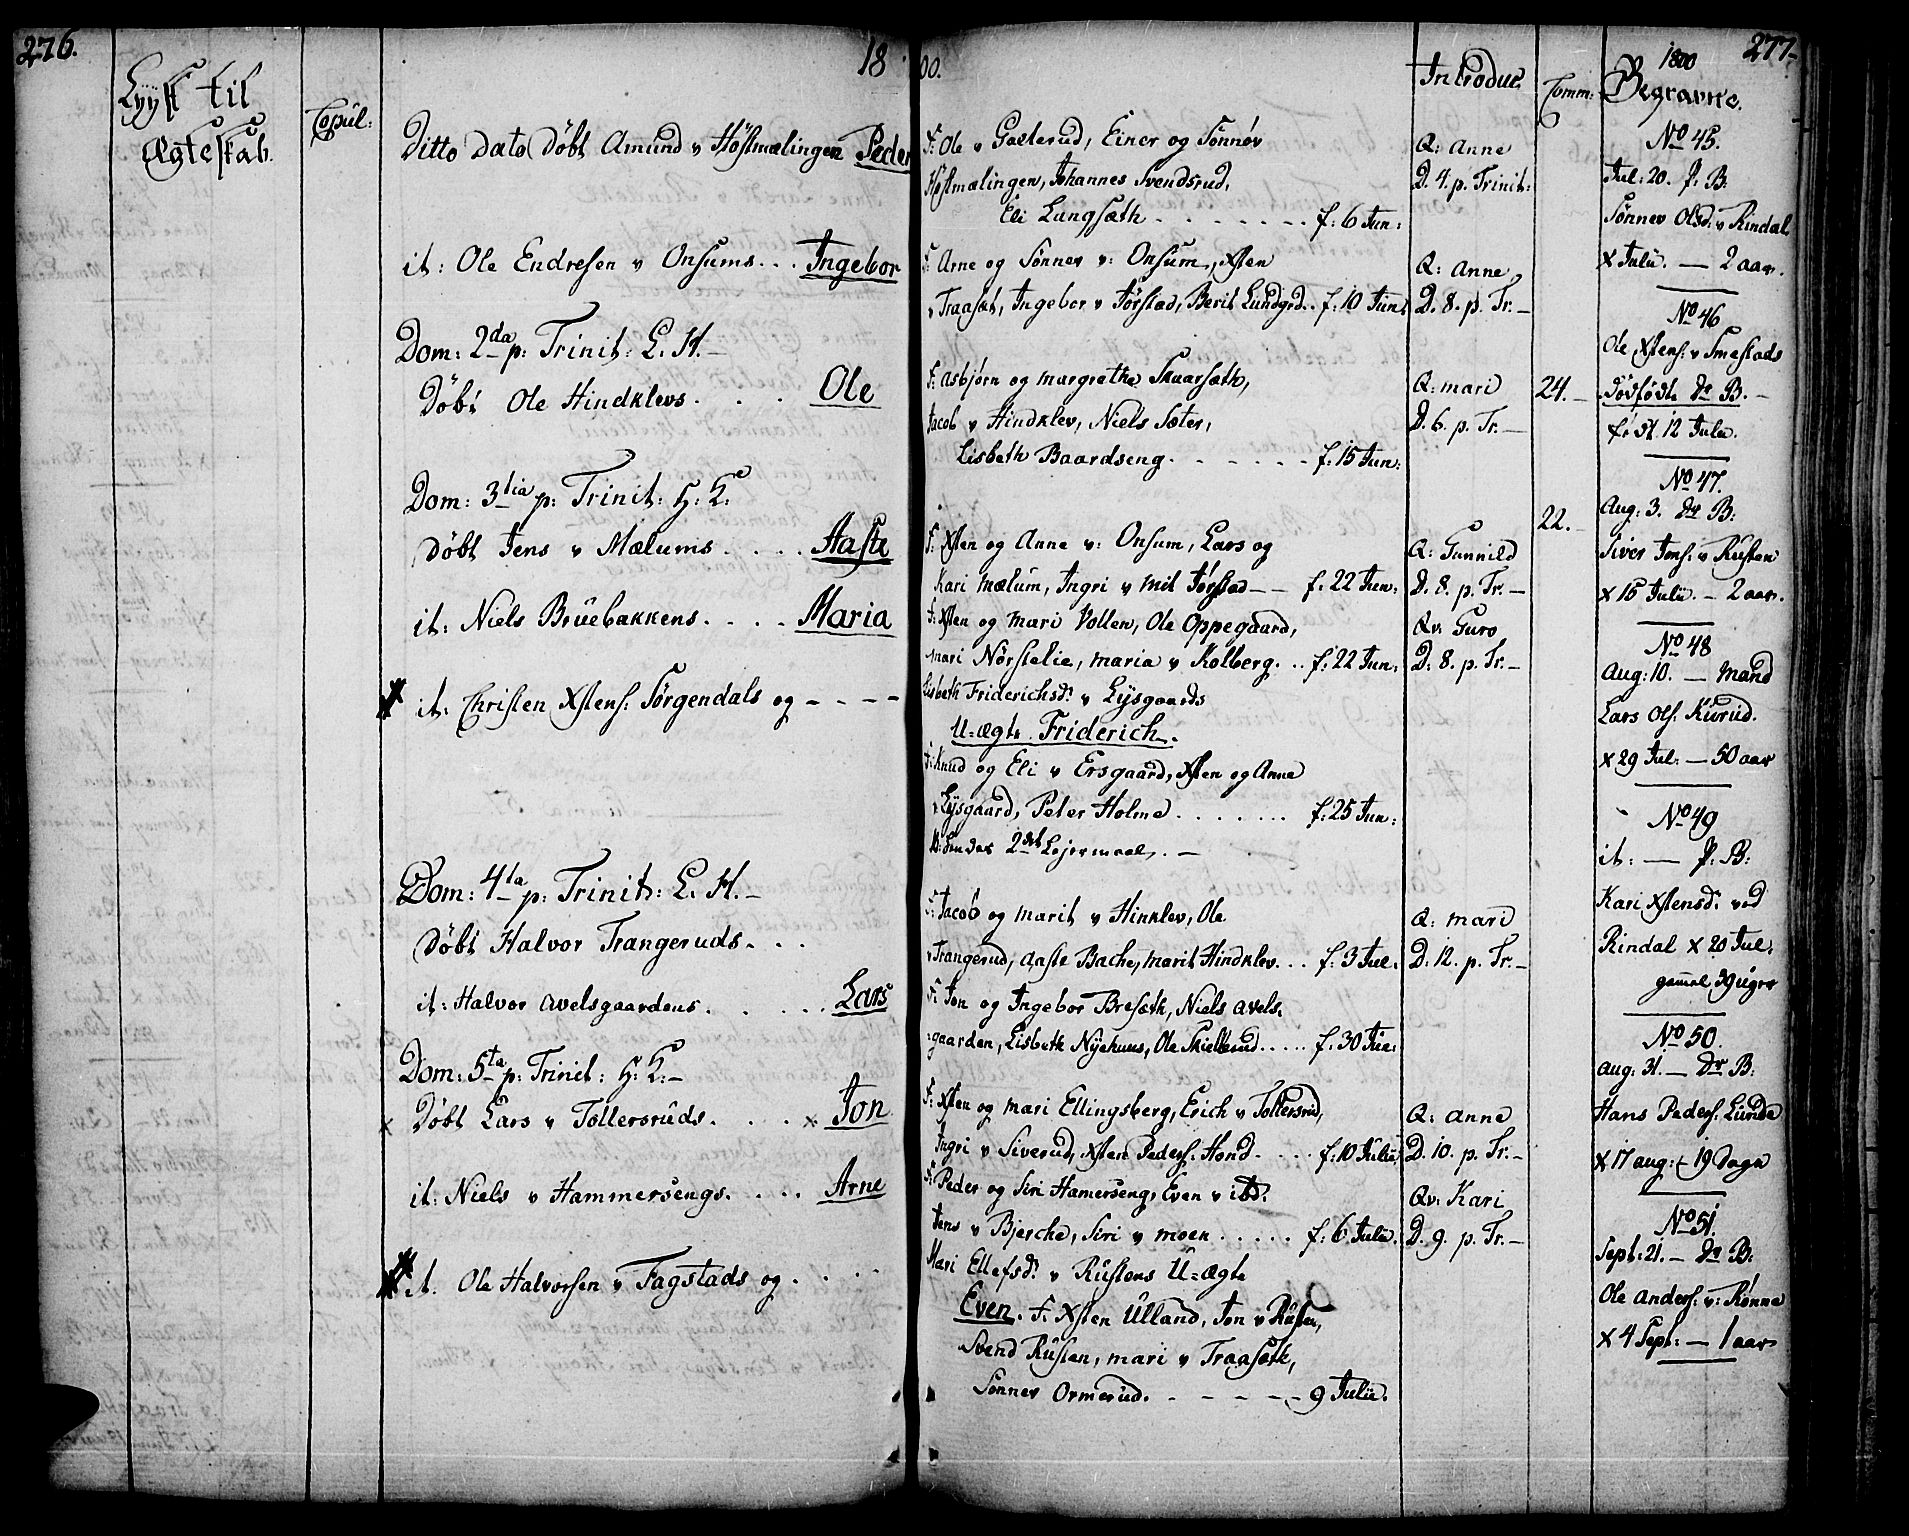 276.
Lyst til
Ægteskab.
Copul:
18
Ditto Dato Døbt Amund v Høstmælingen Peder
it: Ole Endresen v Onsums... Ingebor
Dom: 2da p: Trinit: L. H.-
Døbt Ole Hindklevs. . . . Ole
Dom: 3tia p: Trinit: H: K:
Døbt Jens v Mælums . . . . Aaste
it: Niels Bruebakkens. . . . Maria
it: Christen Xstens: Sørgendals og - - - -
Dom: 4ta p: Trinit: L. H.-
Døbt Halvor Trangeruds. . .
it: Halvor Avelsgaardens. . . . . Lars
Dom: 5ta p: Trinit: H: K:-
x Døbt Lars v Tollersruds. . . . x Jon
it: Niels v Hammersengs. . . . Arne
it. Ole Halvorsen v Fagstads og . . . .
00.
F: Ole v Gaeterud, Einer og Sønnøv
Høstmælingen, Johannes Svendsrud,
Eli Langsæth . . . . . . . f: 6 Jun:
F: Arne og Sønnev v: Onsum, Xsten
v Traaset, Ingebor v Jørstad, Berit Lundgrd.. f: 10 Jun:
F: Asbjørn og Margrethe Skaarsæth,
Jacob v Hindklev, Niels Sæter,
Lisbeth Baardseng. - - - - - - f: 15 Jun:
F: Xsten og Anne v: Onsum, Lars og
Kari Mælum, Ingri v Mit Jørstad - - f: 22 Jun:
F: Xsten og Mari Vollen, Ole Oppegaard,
Mari Nørstelie, Maria v Kolberg. .. f: 22 Jun:
Lisbeth Friderichsd: v Lysgaards
U-ægte Friderich.
F: Knud og Eli v Ersgaard, Xsten og Anne
v Lysgaard, Peter Holme . . . . . . . f: 25 Jun:
2det Lejermaal. -
F: Jacob og Marit v Hinklev, Ole
v Trangerud, Aaste Bache, Marit Hindklev... f: 3 Jul:
F: Jon og Ingebor Bresæth, Niels Avels-
gaarden, Lisbeth Nyehuus, Ole Skiellerud . . . . . f: 30 Jun:
F: Xsten og Mari Ellingsberg, Erich v Tollersrud,
Ingri v Siverud, Xsten Peders: Hond. . . . f: 10 Julii
F: Peder og Siri Hamerseng, Even v ibd:
Jens v Bjerche, Siri v Moen . . . . . f: 6 Julii.
Mari Ellefsd: v Rustens U-ægte
Even. F: Xsten Ulland, Jon v Rusten,
Svend Rusten, Mari v Traaseth,
Sønnev Ormerud. - - - - - - 9 Julii.
Introduc.
Q: Anne
D. 4. p. Trinit:
Q: Anne
D. 8. p. Tr.-
Q: Mari
D. 6. p. Tr.-
Q: Gunnild
D. 8. p. Tr.-
Qv: Guro
D: 8. p. Tr.-
Q: Mari
D: 12. p. Tr.-
Q: Anne
D. 10. p. Tr.-
Qv: Kari
D. 9. p. Tr.-
Comm:
24.-
22.-
277.
1800
Begravne.
No 45.
Jul: 20. P: B:
Sønnev Olsd: v Rindal
x Julii. - 2 aar.
No 46
Ole Xstens: v Smestads
Dødfødte Dr B. -
født 12 Julii.
No 47.
Aug: 3. Dr B:
Siver Jens: v Rusten
x 15 Julii. - 2 aar.
No 48
Aug: 10. - Mand
Lars Ols: Kurud.
x 29 Jul: - 50 aar
No 49
it: - P: B:
Kari Xstensd: ved
Rindal x 20 Jul:
gamel 3 uger
No 50.
Aug: 31. - Dr B:
Hans Peders: Lunde
x 17 Aug: - 19 Dage
No 51.
Sept: 21. - Dr B:
Ole Anders: v: Rønne
x 4 Sept: - 1 aar